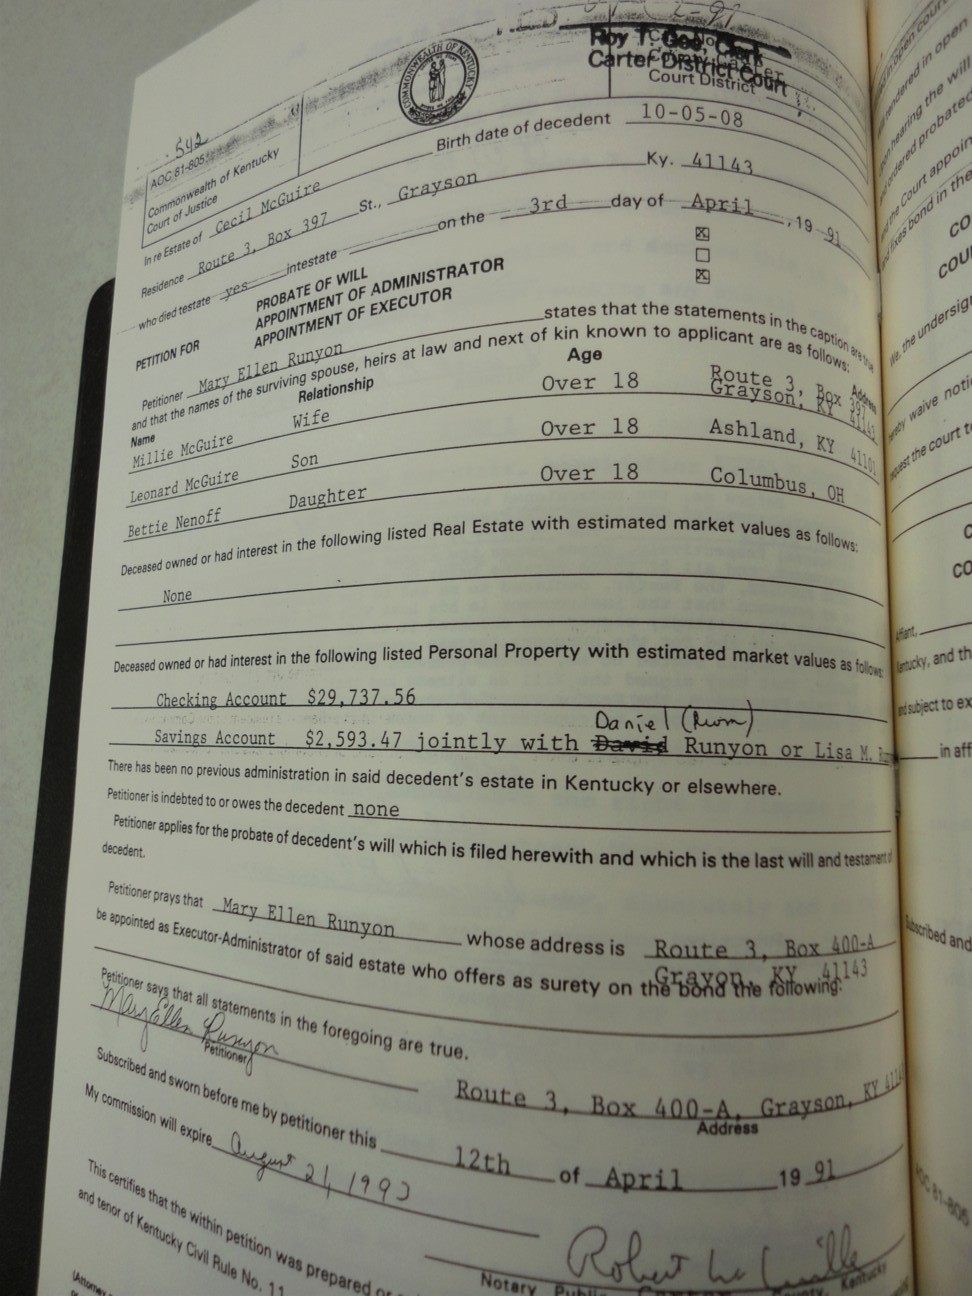 Roy T. Gee, Clerk
Carter District Court
Court District
COMMONWEALTH OF KENTUCKY
542
AOC 81-805
Commonwealth of Kentucky
Court of Justice
Birth date of decedent 10-05-08
In re Estate of Cecil McGuire
Residence Route 3, Box 397 St., Grayson Ky. 41143
who died testate yes intestate on the 3rd day of April, 19 91
PETITION FOR
PROBATE OF WILL ☒
APPOINTMENT OF ADMINISTRATOR ☐
APPOINTMENT OF EXECUTOR ☒
Petitioner Mary Ellen Runyon states that the statements in the caption are true
and that the names of the surviving spouse, heirs at law and next of kin known to applicant are as follows:
Name Relationship Age Address
Millie McGuire Wife Over 18 Route 3, Box 397
Grayson, KY 41143
Leonard McGuire Son Over 18 Ashland, KY 41101
Bettie Nenoff Daughter Over 18 Columbus, OH
Deceased owned or had interest in the following listed Real Estate with estimated market values as follows:
None
Deceased owned or had interest in the following listed Personal Property with estimated market values as follows:
Checking Account $29,737.56
Daniel (Rwm)
Savings Account $2,593.47 jointly with David Runyon or Lisa M.
There has been no previous administration in said decedent's estate in Kentucky or elsewhere.
Petitioner is indebted to or owes the decedent none
Petitioner applies for the probate of decedent's will which is filed herewith and which is the last will and testament of
decedent.
Petitioner prays that Mary Ellen Runyon whose address is Route 3, Box 400-A
Grayon, KY 41143
be appointed as Executor-Administrator of said estate who offers as surety on the bond the following:
Petitioner says that all statements in the foregoing are true.
Mary Ellen Runyon
Petitioner
Route 3, Box 400-A, Grayson, KY 4114
Address
Subscribed and sworn before me by petitioner this 12th of April 19 91
My commission will expire August 21, 1993
This certifies that the within petition was prepared
and tenor of Kentucky Civil Rule No. 11
Robert
Notary Public County, Kentucky
(Attorney